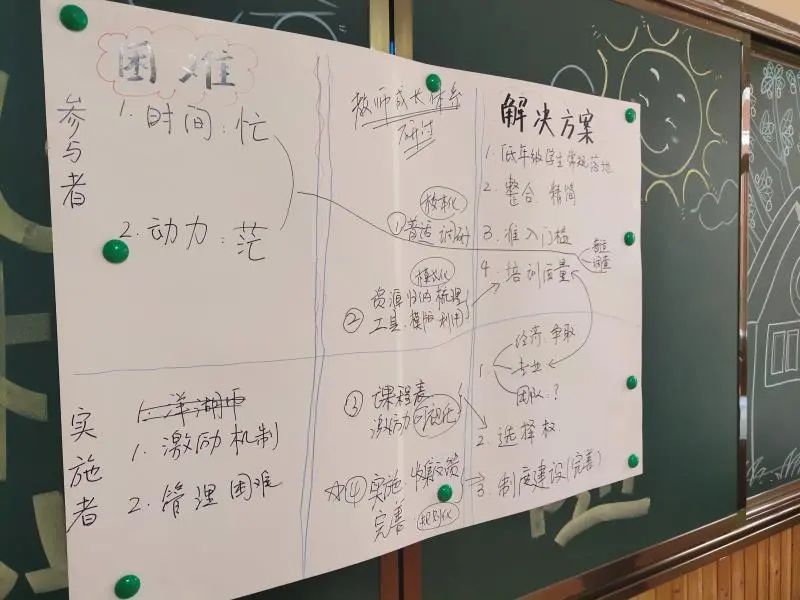 困难
参与者
1. 时间：忙
2. 动力：茫
实施者
1. 洋湖币
1. 激励机制
2. 管理困难
教师成长体系
研讨
校本化
① 普适 调研
模式化
② 资源归纳 梳理
工具．模版 利用
③ 课程表
激励力 可视化
☆④ 实施 收集反馈
完善
规划化
解决方案
1. 低年级学生常规落地
2. 整合．精简
3. 准入门槛
4. 培训质量
普适
调查
1.
经济：争取
专业
团队：？
2. 选择权
3. 制度建设（完善）